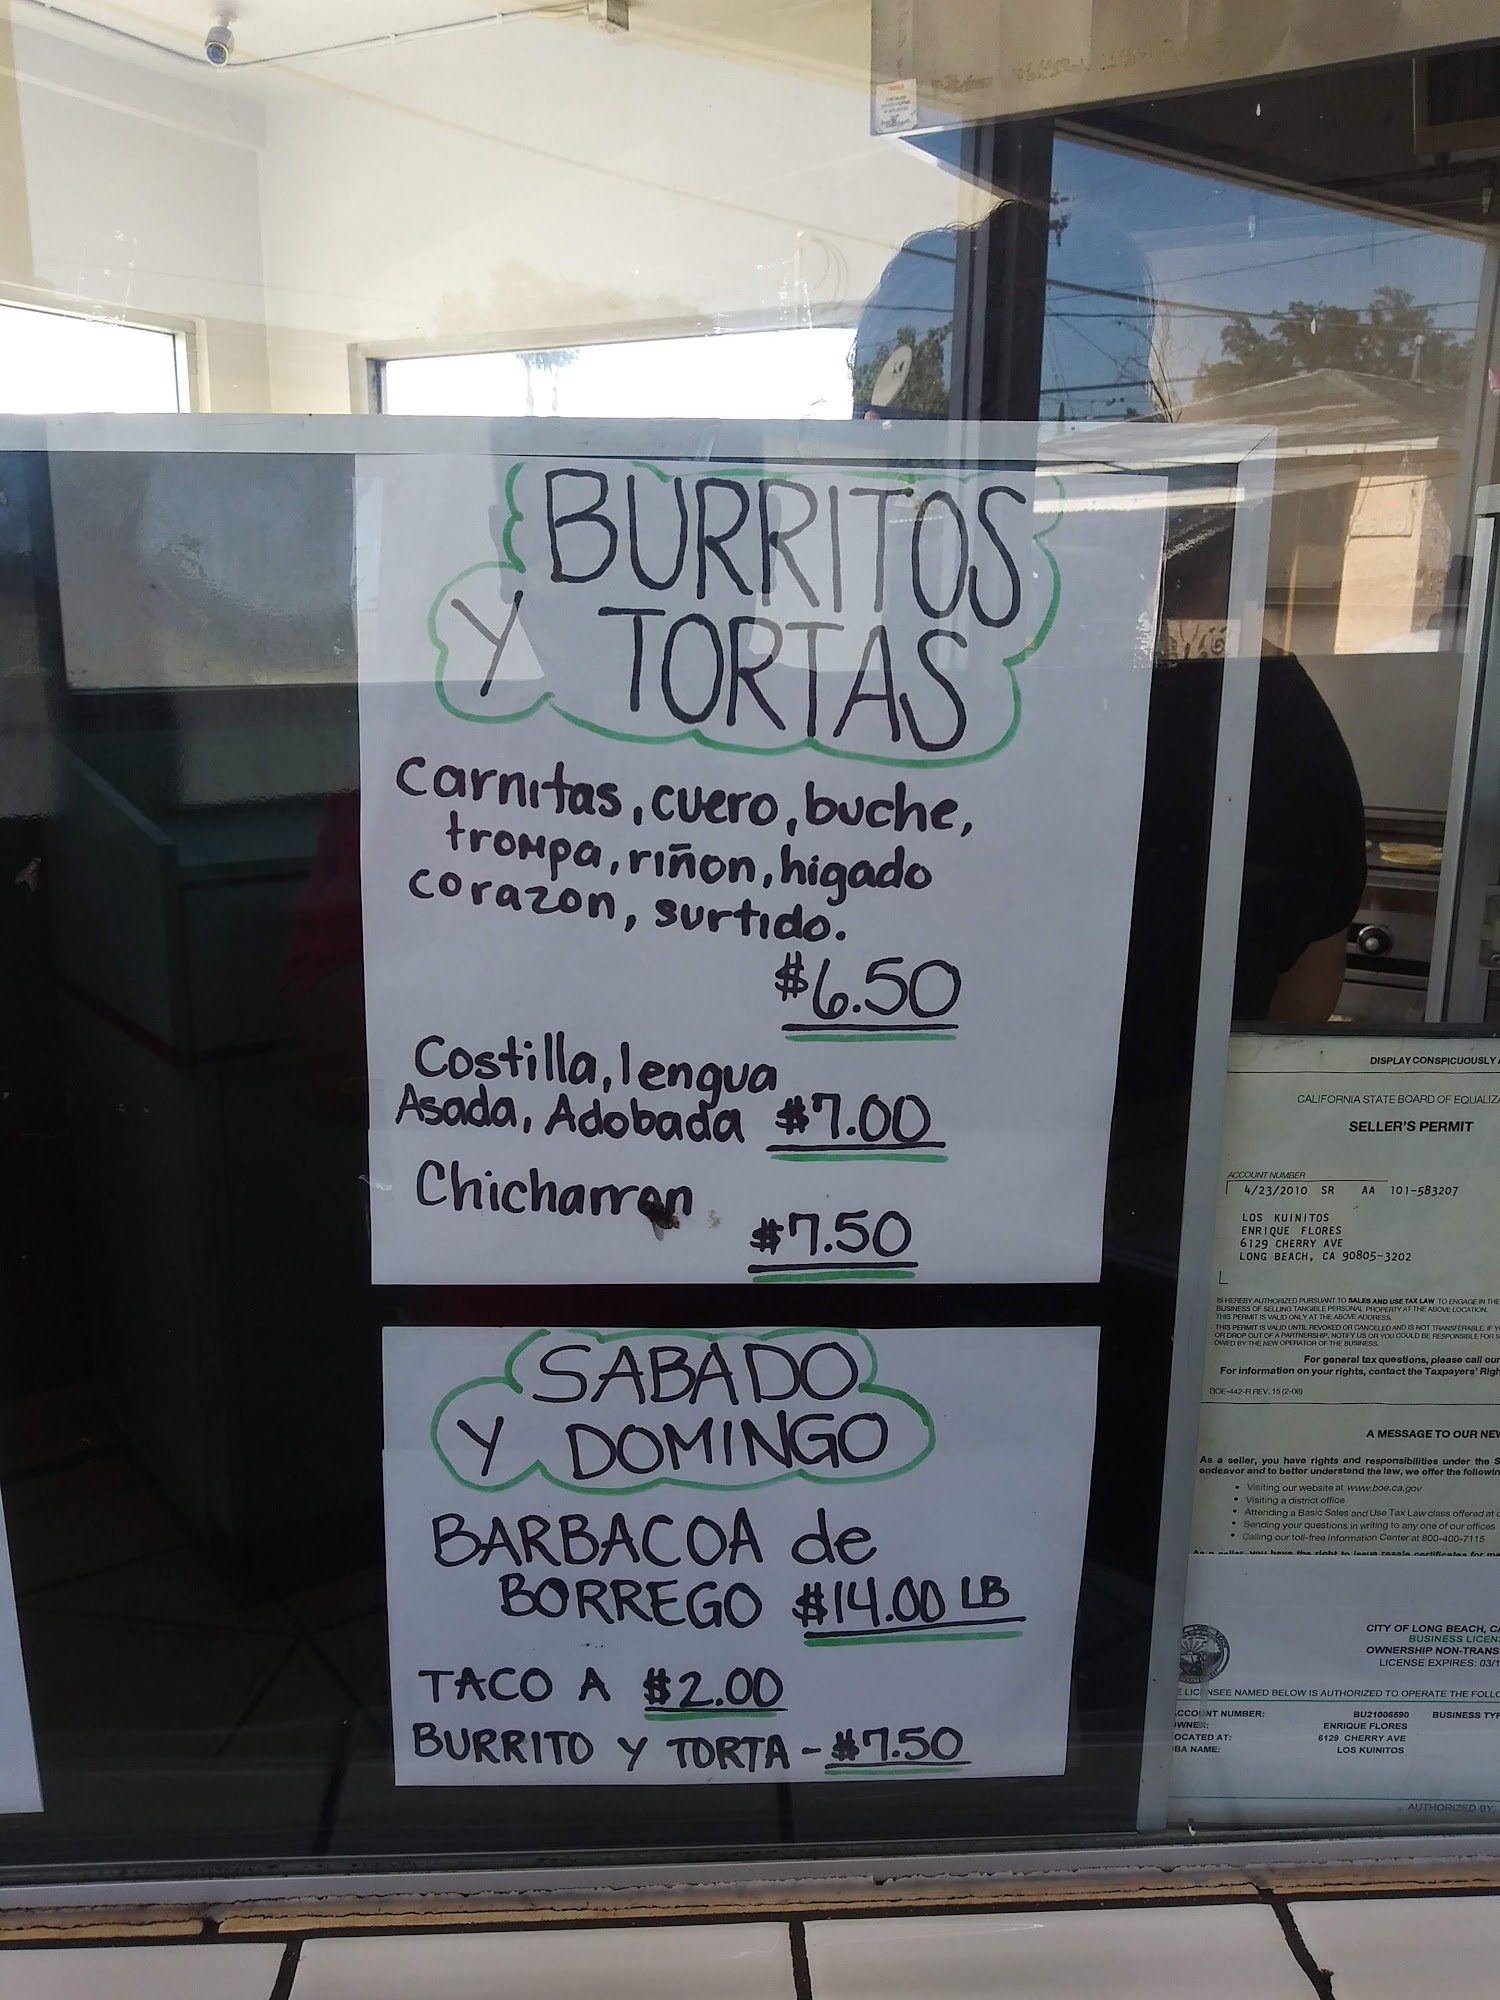 BURRITOS
Y TORTAS
Carnitas, cuero, buche,
trompa, riñon, higado
corazon, surtido.
$6.50
Costilla, lengua
Asada, Adobada $7.00
Chicharron
$7.50
SABADO
Y DOMINGO
BARBACOA de
BORREGO $14.00 LB
TACO A $2.00
BURRITO Y TORTA - $7.50
DISPLAY CONSPICUOUSLY
CALIFORNIA STATE BOARD OF
SELLER'S PERMIT
ACCOUNT NUMBER
4/23/2010 SR AA 101-583207
LOS KUINITOS
ENRIQUE FLORES
6129 CHERRY AVE
LONG BEACH, CA 90805-3202
IS HEREBY AUTHORIZED PURSUANT TO SALES AND USE TAX LAW TO ENGAGE IN THE
BUSINESS OF SELLING TANGIBLE PERSONAL PROPERTY AT THE ABOVE LOCATION.
THIS PERMIT IS VALID ONLY AT THE ABOVE ADDRESS.
THIS PERMIT IS VALID UNTIL REVOKED OR CANCELED AND IS NOT TRANSFERABLE. IF
OR DROP OUT OF A PARTNERSHIP, NOTIFY US OR YOU COULD BE RESPONSIBLE FOR
OWED BY THE NEW OPERATOR OF THE BUSINESS.
For general tax questions, please call our
For information on your rights, contact the Taxpayers'
BOE-442-R REV. 15 (2-06)
A MESSAGE TO OUR
As a seller, you have rights and responsibilities under the
endeavor and to better understand the law, we offer the
• Visiting our website at www.boe.ca.gov
• Visiting a district office
• Attending a Basic Sales and Use Tax Law class offered at
• Sending your questions in writing to any one of our offices
• Calling our toll-free Information Center at 800-400-7115
CITY OF LONG BEACH,
BUSINESS
OWNERSHIP
LICENSE EXPIRES:
NAMED BELOW IS AUTHORIZED TO OPERATE THE
NUMBER: BU21006590 BUSINESS
ENRIQUE FLORES
AT: 6129 CHERRY AVE
NAME: LOS KUINITOS
AUTHORIZED BY: